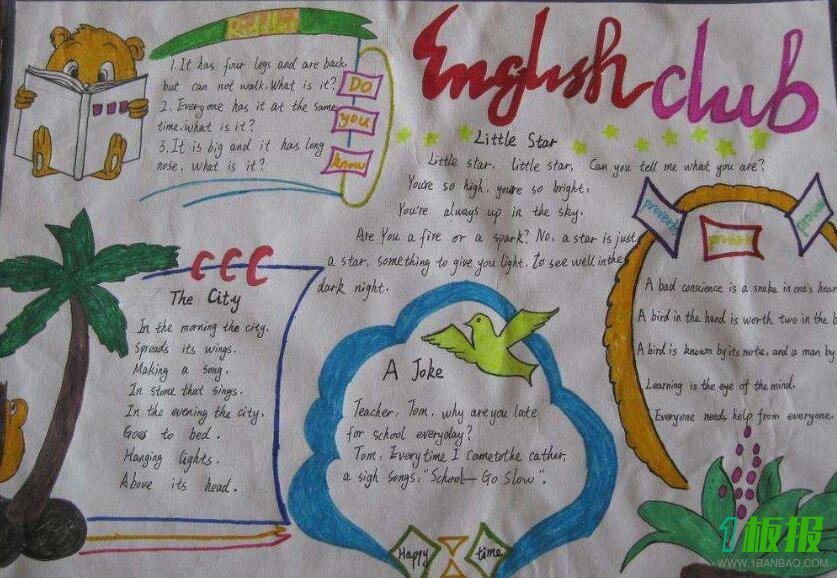 English club
1. It has four legs and are back,
but can not walk. What is it?
2. Everyone has it at the same
time. what is it?
3. It is big and it has long
nose, what is it?
Do
you
know
Little Star
Little star, little star, Can you tell me what you are?
You're so high, you're so bright,
You're always up in the sky.
Are You a fire or a spark? No, a star is just
a star, something to give you light. To see well in the
dark night.
proverb
proverb
A bad conscience is a snake in one's hear
A bird in the hand is worth two in the b
A bird is known by its note, and a man by
Learning is the eye of the mind.
Everyone needs help from everyone.
CCC
The City
In the morning the city.
Spreads its wings.
Making a song.
In stone that sings.
In the evening the city,
Goes to bed.
Hanging lights.
Above its head.
A Joke
Teacher: Tom, why are you late
for school everyday?
Tom: Every time I came to the cather,
a sigh songs: "School— Go Slow".
Happy time
1板报
WWW.1BANBAO.COM